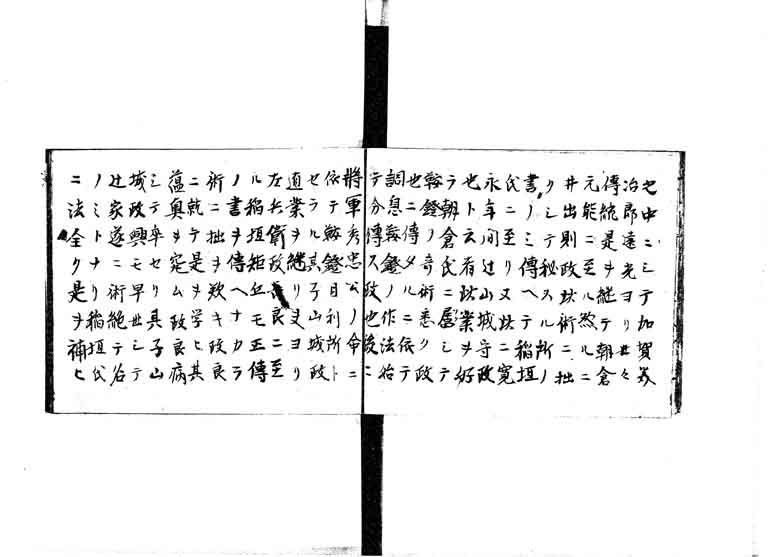 也中ニシテ加賀美
冶郎遠光ヨリ世々
傳統是ヲ継テ朝倉
元能ニ至ル然ルニ
井出則政此術ニ拙
クシテ秘スル所ノ
書ノミ傳ヘテ稲垣
氏ニ至リ又此ニ寛
永年间辻山城守政
也ト云有此業ヲ好
ラ朝倉氏ニ属シテ
鞍鐙ノ奇術悉ク政
也ニ傳タルニ依テ
調息鞍鐙ノ作法始
テ分傳ス政也後ニ
將軍秀忠公ノ命ニ
依テ鞍鐙日利所ト
セラル其子山城政
直業ヲ継リ夫ヨリ
左兵衛政良ニ至
ル稲垣矩丘モ正傳
ノ書ヲ傳ヘナカラ
術ニ拙ヲ歎キ政良
ニ就テ是ヲ学ヒ其
蕴奥ヲ究ム政良病
シテ卒セリ其子山
城政興モ早世シテ
辻家遂ニ術絶テ名
ノミトナリ稲垣氏
ニ法全ク是ヲ補ヒ